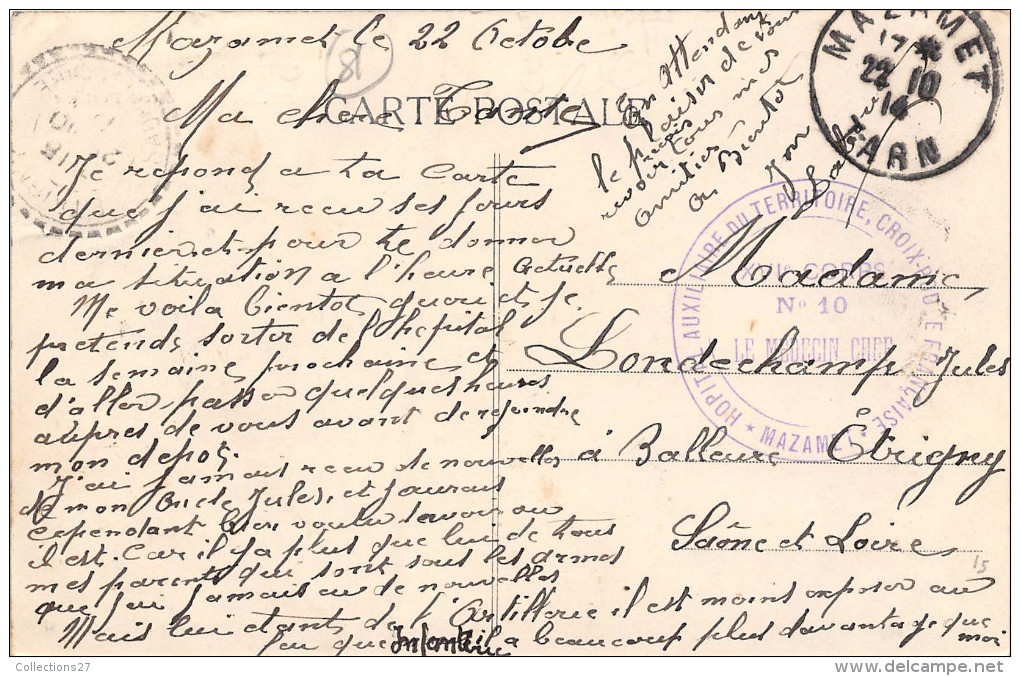 Mazamet le 22 Octobre
81
CARTE POSTALE
Ma chere Tante
Je repond a ta Carte
que j'ai recu ses jours
derniers et pour te donner
ma situation a l'heure actuelle
Me voila bientot queri et je
pretends sortir de l'hopital
la semaine prochaine et
d'aller passer quelques heures
aupres de vous avant de rejoindre
mon depot.
J'ai jamais recu de nouvelles
de mon Oncle Jules, et j'aurais
cependant bien voulu savoir ou
il est. Car il y a plus que lui de tous
mes parents qui sont sous les armes
que j'ai jamais eu de nouvelles
Mais lui etant de l'Artillerie il est moins exposer au
feu que Infanterie il a beaucoup plus davantage que
moi
En attendant
le plaisir de vous
revoir tous mes
amities
a Bientot
MAZAMET
17 *
22 10
14
TARN
HOPITAL AUXILIAIRE DU TERRITOIRE, CROIX-ROUGE FRANÇAISE
CORPS
No 10
LE MÉDECIN CHEF
★ MAZAMET ★
Madame
Londechamp Jules
à Balleure Etrigny
Saône et Loire
15
Collections27
delcampe.net